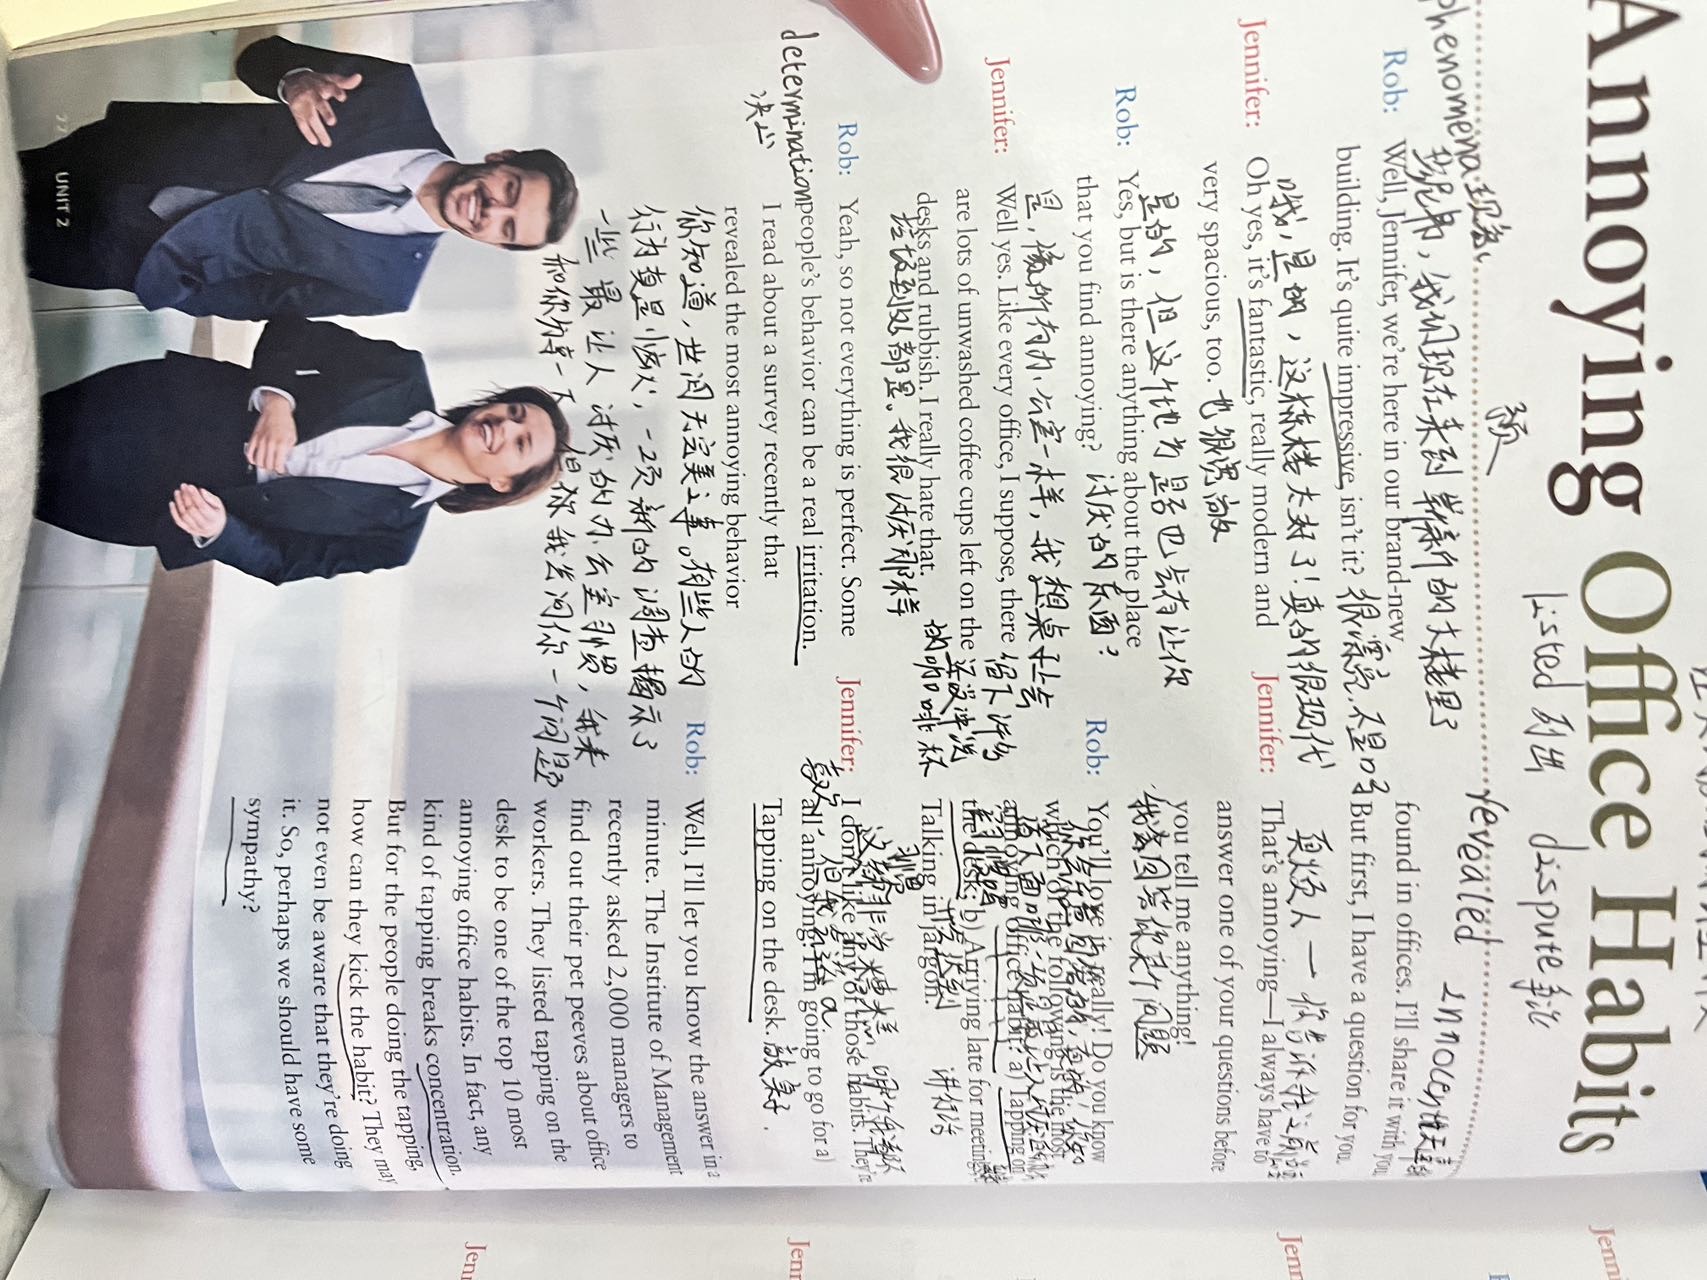 Annoying Office Habits
listed 列出 dispute 争论
revealed
phenomena 现象
Rob: Well, Jennifer, we're here in our brand-new
building. It's quite impressive, isn't it? 很漂亮,不是吗?
哦,是的,这栋楼太好了!真的很现代
Jennifer: Oh yes, it's fantastic, really modern and
very spacious, too. 也很宽敞
是的,但这个地方是否也会有让你
Rob: Yes, but is there anything about the place
that you find annoying? 讨厌的东西?
是,像所有办公室一样,我想桌子上会
Jennifer: Well yes. Like every office, I suppose, there 留下许多
are lots of unwashed coffee cups left on the 没冲洗
desks and rubbish. I really hate that. 的咖啡杯
垃圾到处都是。我很讨厌那样
Rob: Yeah, so not everything is perfect. Some
determination people's behavior can be a real irritation.
决心
I read about a survey recently that
revealed the most annoying behavior
你知道,世间无完美之事。有些人的
行为真是恼火,一项新的调查揭示了
一些最让人讨厌的办公室习惯,我来
和你分享一下 但我会问你一个问题
found in offices. I'll share it with you.
But first, I have a question for you.
Jennifer: That's annoying—I always have to
answer one of your questions before
you tell me anything!
Rob: You'll love it really! Do you know
which of the following is the most
annoying office habit? a) Tapping on
the desk; b) Arriving late for meetings;
Talking in jargon.
讲行话
Jennifer: I don't like any of those habits. They're
all annoying. I'm going to go for a)
Tapping on the desk. 敲桌子.
Rob: Well, I'll let you know the answer in a
minute. The Institute of Management
recently asked 2,000 managers to
find out their pet peeves about office
workers. They listed tapping on the
desk to be one of the top 10 most
annoying office habits. In fact, any
kind of tapping breaks concentration.
But for the people doing the tapping,
how can they kick the habit? They may
not even be aware that they're doing
it. So, perhaps we should have some
sympathy?
UNIT 2
Jenn
Jenn
Jenn
Jen